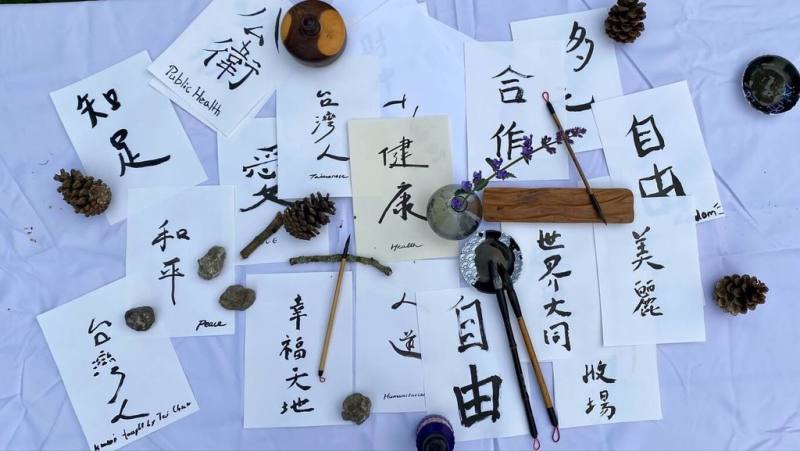 知
足
公
衛
Public Health
台
灣
人
Taiwanese
愛
合
作
多
自
由
健
康
Health
和
平
Peace
台
灣
人
taught by Tai
幸
福
天
地
人
道
自
由
世
界
大
同
美
麗
場